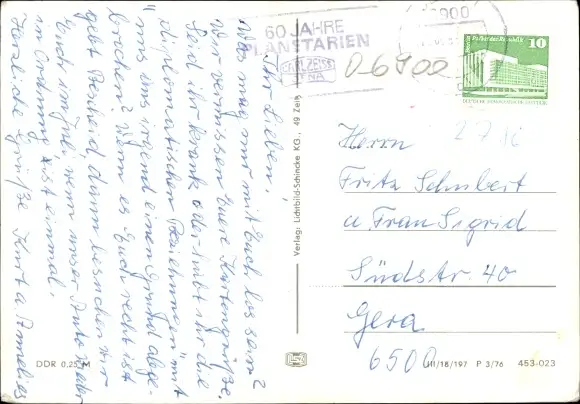 Ihr Lieben,
Was mag nur mit Euch los sein?
Wir vermissen Eure Kartengrüße.
Seid ihr krank oder habt ihr die
"diplomatischen Beziehungen" mit
uns aus irgend einem Grund abge-
brochen? Wenn es Euch recht ist
gebt Bescheid dann besuchen wir
Euch im Juli, wenn unser Auto wieder
in Ordnung ist einmal.
Herzliche Grüße Kurt u. Annelies
DDR 0,25 M
Verlag: Lichtbild-Schincke KG., 49 Zeitz
60 JAHRE
PLANETARIEN
CARL ZEISS
JENA
6900
D-6900
Palast der Republik
10
DEUTSCHE DEMOKRATISCHE REPUBLIK
Herrn
Fritz Schubert
u. Frau Sigrid
Südstr. 40
Gera
6500
III/18/197 P 3/76 453-023